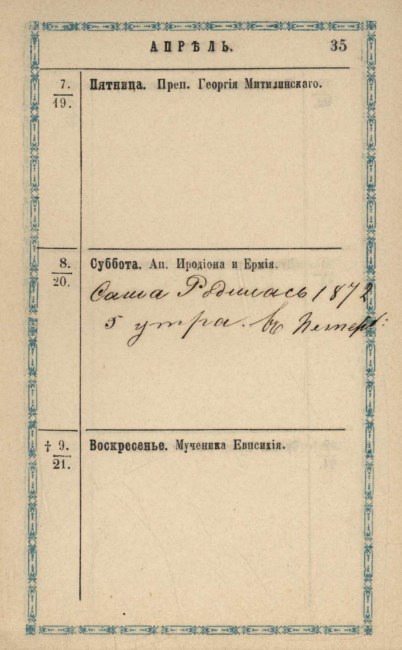 АПРѢЛЬ. 35
7.
19.
Пятница. Преп. Георгія Митилинскаго.
8.
20.
Суббота. Ап. Иродіона и Ермія.
Саша Родилась 1872
5 утра. въ Петерб:
† 9.
21.
Воскресенье. Мученика Евпсихія.